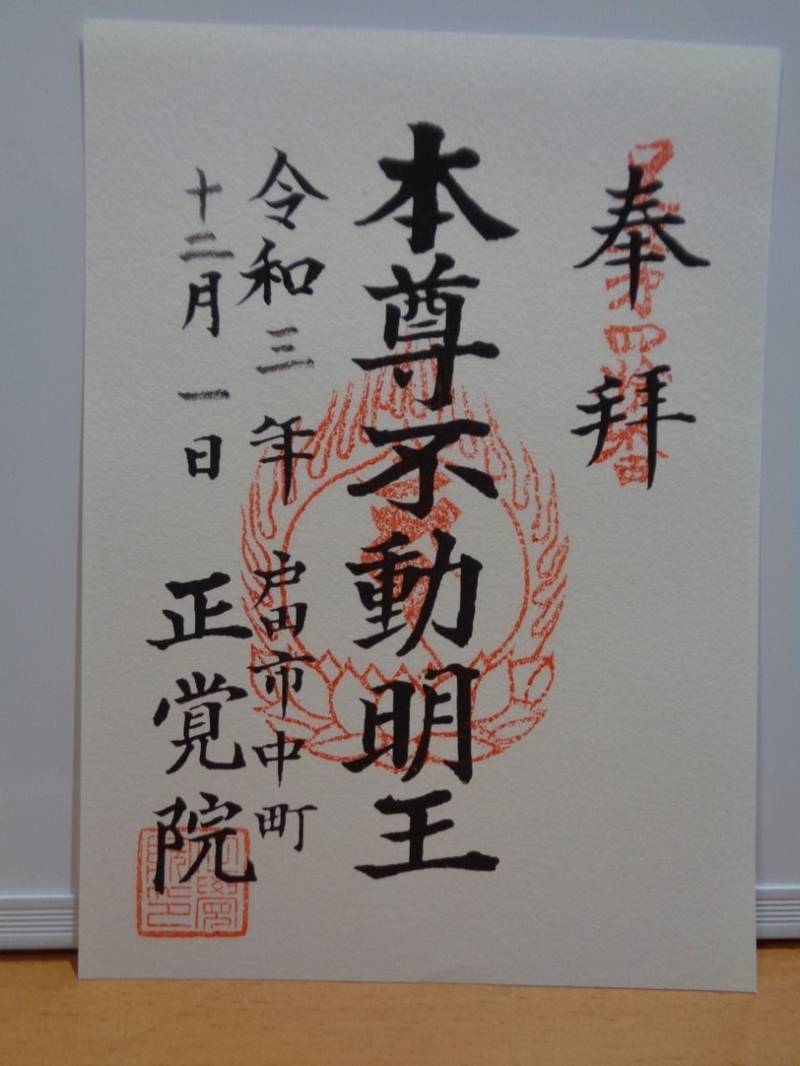 奉拝
本尊不動明王
令和三年 戸田市中町
十二月一日 正覚院